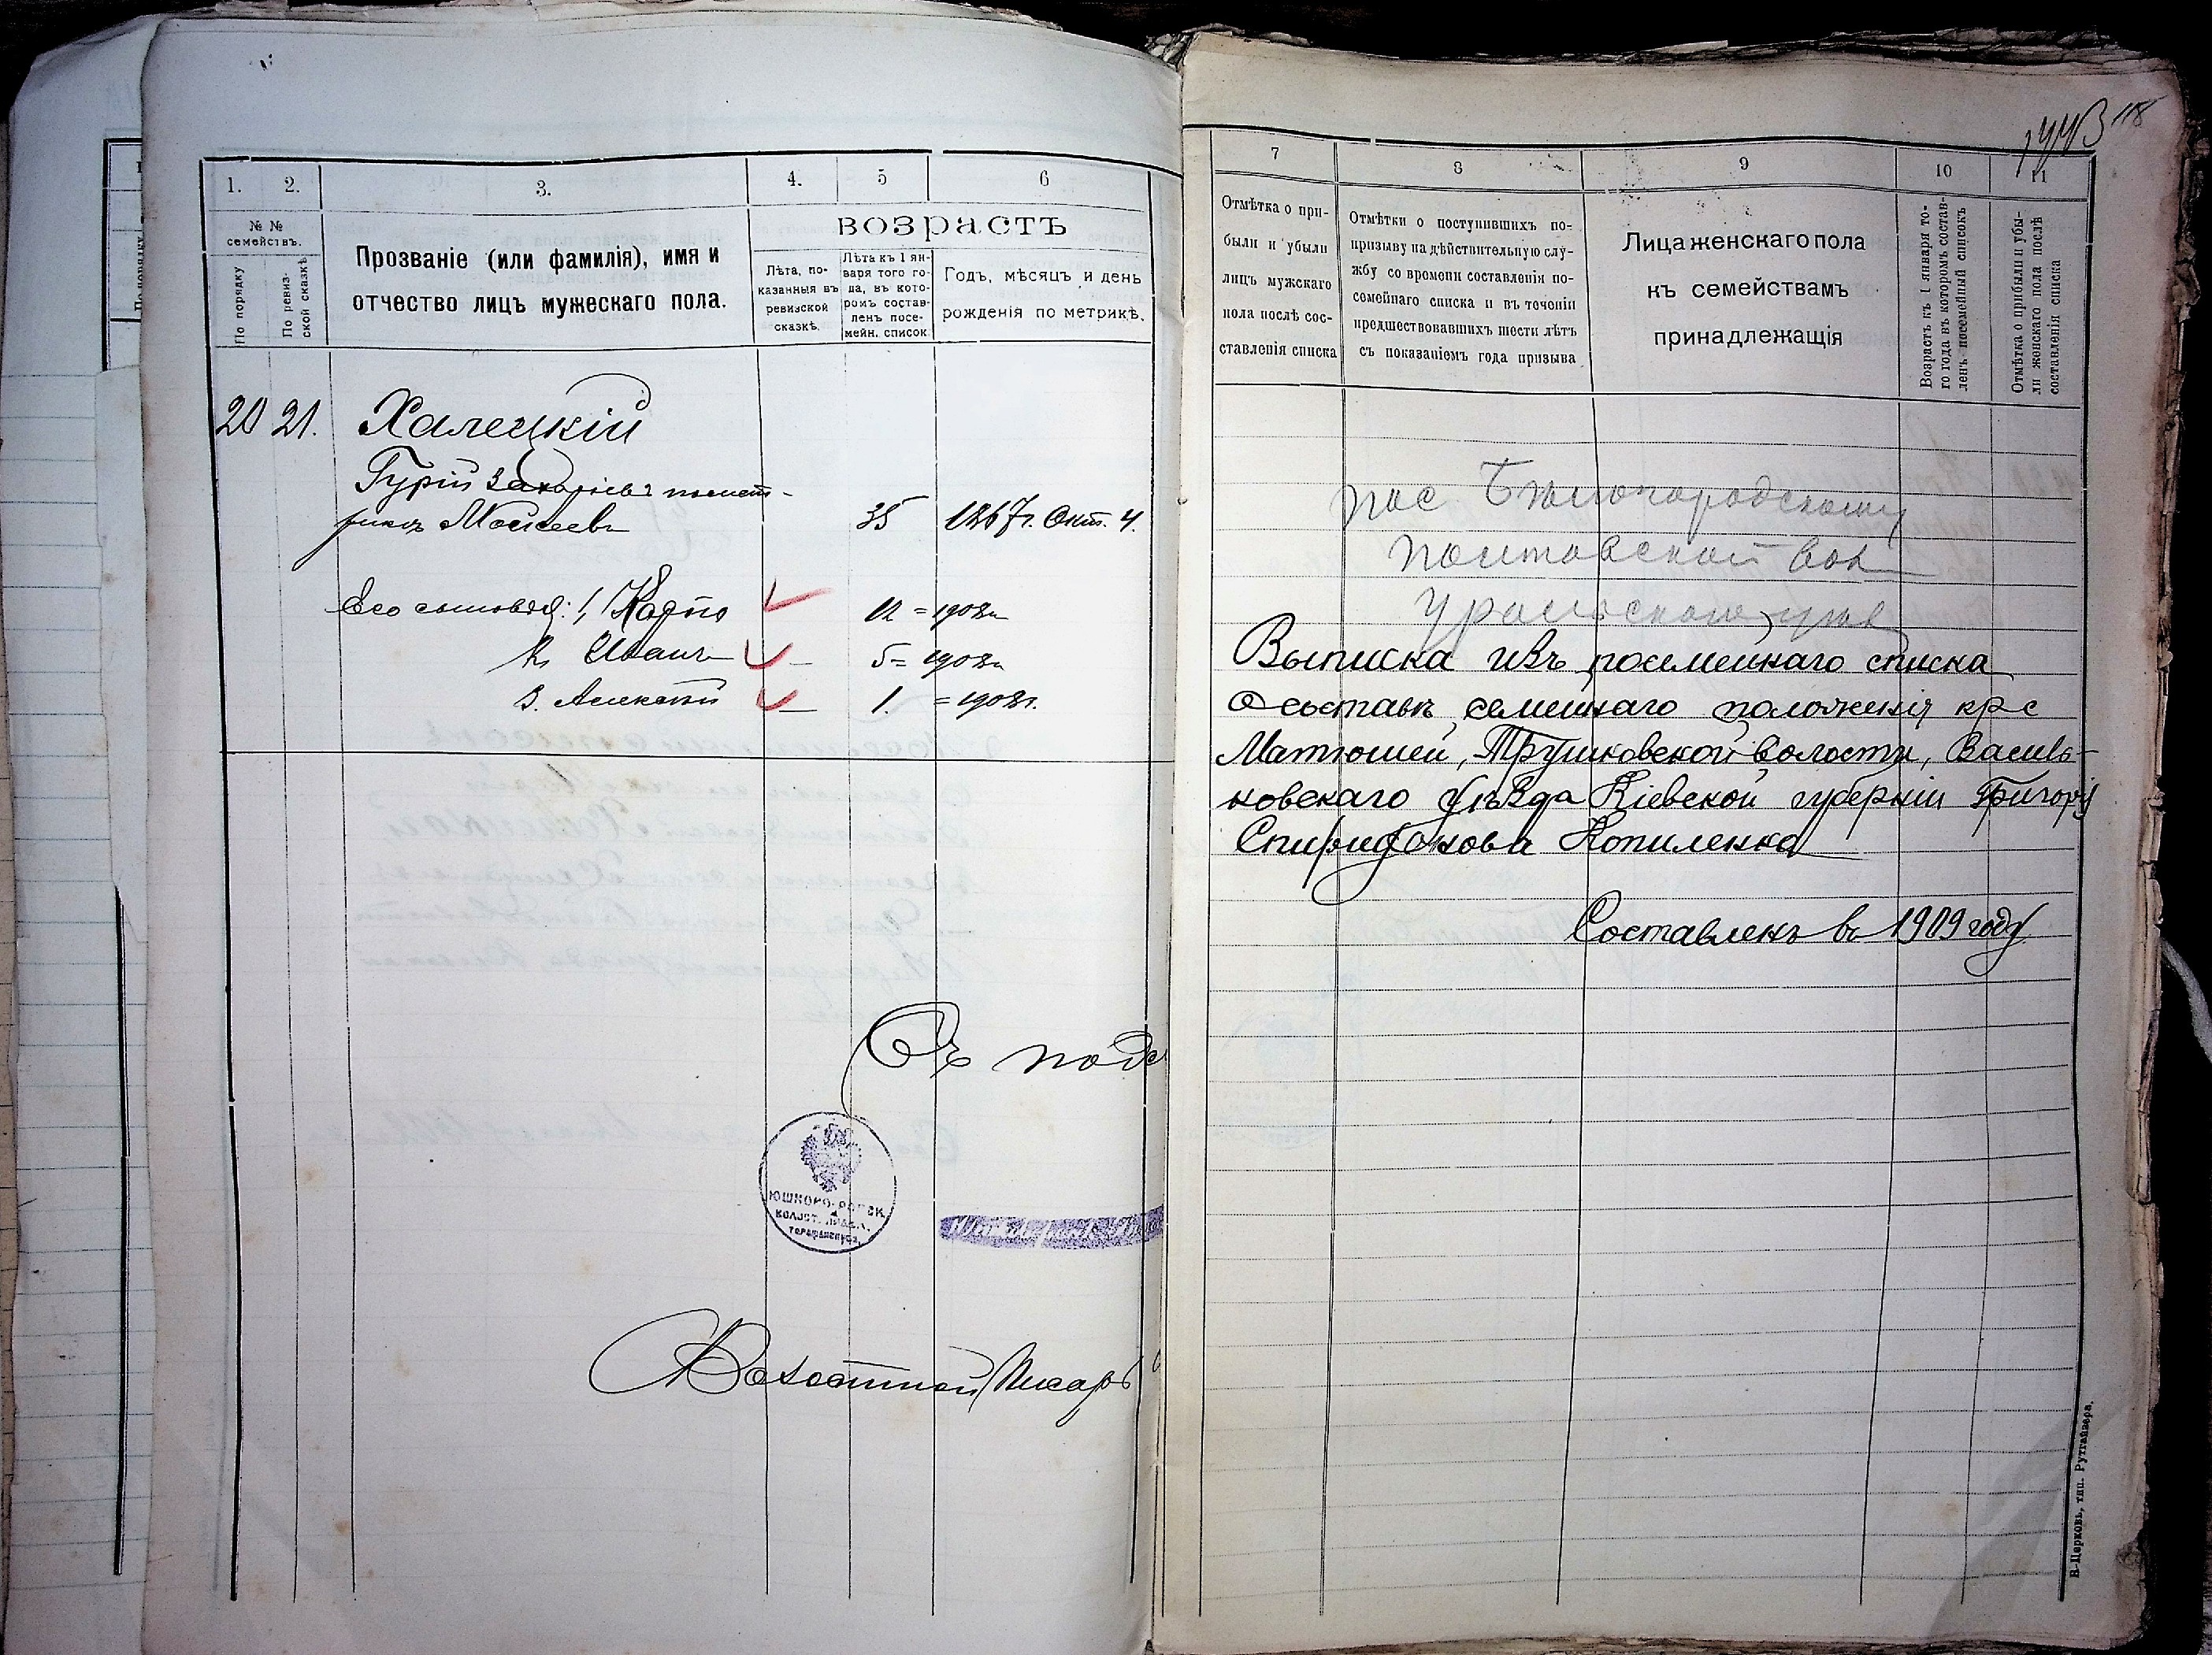 1.
2.
3.
4.
5
6
№ №
семействъ.
По порядку
По ревиз-
ской сказкѣ
Прозваніе (или фамилія), имя и
отчество лицъ мужескаго пола.
возрастъ
Лѣта, по-
казанныя въ
ревизской
сказкѣ.
Лѣта къ 1 ян-
варя того го-
да, въ кото-
ромъ состав-
ленъ посе-
мейн. список
Годъ, мѣсяцъ и день
рожденія по метрикѣ.
20 21. Халецкій
Гурій Захаріевъ помет-
рикѣ Моисеевъ 35 1867г. Окт. 4.
Его сыновья: 1, Карпо 12 = 1908г.
2, Иванъ 5 = 1908г.
3. Алексѣй 1. = 1908г.
Съ под
ЮШКОВО-РОГСК.
ВОЛОСТ. ПРАВЛ.
Волостной Писарь
118
7
8
9
10
11
Отмѣтка о при-
были и убыли
лицъ мужскаго
пола послѣ сос-
ставленія списка
Отмѣтки о поступившихъ по-
призыву на дѣйствительную слу-
жбу со времени составленія по-
семейнаго списка и въ теченіи
предшествовавшихъ шести лѣтъ
съ показаніемъ года призыва
Лица женскаго пола
къ семействамъ
принадлежащія
Возрастъ къ 1 января то-
го года въ которомъ состав-
ленъ посемейный списокъ
Отмѣтка о прибыли и убы-
ли женскаго пола послѣ
составленія списка
пос Бѣлогородскому
Полтавской вол
Уральскаго уѣз
Выписка изъ посемейнаго списка
О составѣ семейнаго положенія кр с
Матюшей, Трушковской волости, Василь-
ковскаго уѣзда Кіевской губерніи Григорія
Спиридонова Копиленка
Составленъ въ 1909 году
В.-Церковь, тип. Рутгайзера.